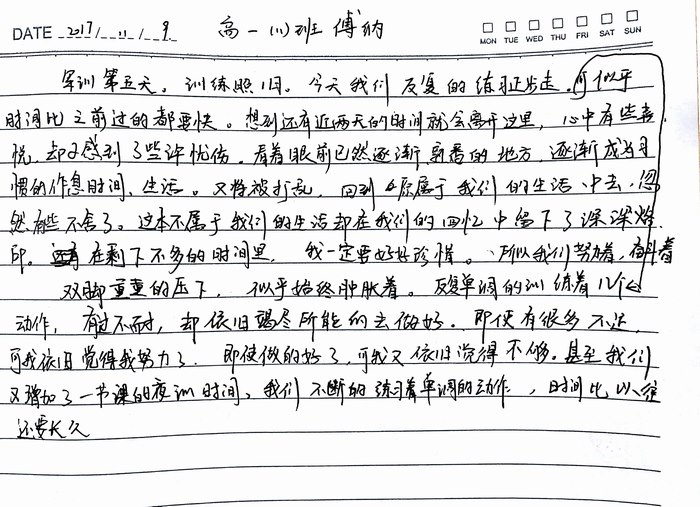 DATE 2017/11/9 高一(11)班 傅纳
MON TUE WED THU FRI SAT SUN
军训第五天。训练照旧。今天我们反复的练习正步走。似乎
时间比之前过的都要快。想到还有近两天的时间就会离开这里,心中有些喜
悦,却又感到了些许忧伤。看着眼前已然逐渐熟悉的地方,逐渐成为习
惯的作息时间、生活。又将被打乱,回到原属于我们的生活中去,忽
然有些不舍了。这本不属于我们的生活却在我们的回忆中留下了深深烙
印。在剩下不多的时间里,我一定要好好珍惜。所以我们努力着,奋斗着
双脚重重的压下,似乎始终肿胀着。反复单调的训练着几个
动作,有过不耐,却依旧竭尽所能的去做好。即使有很多不足,
可我依旧觉得我努力了。即使做的好了,可我又依旧觉得不够。甚至我们
又增加了一节课的夜训时间、我们不断的练习着单调的动作,时间比以往
还要长久